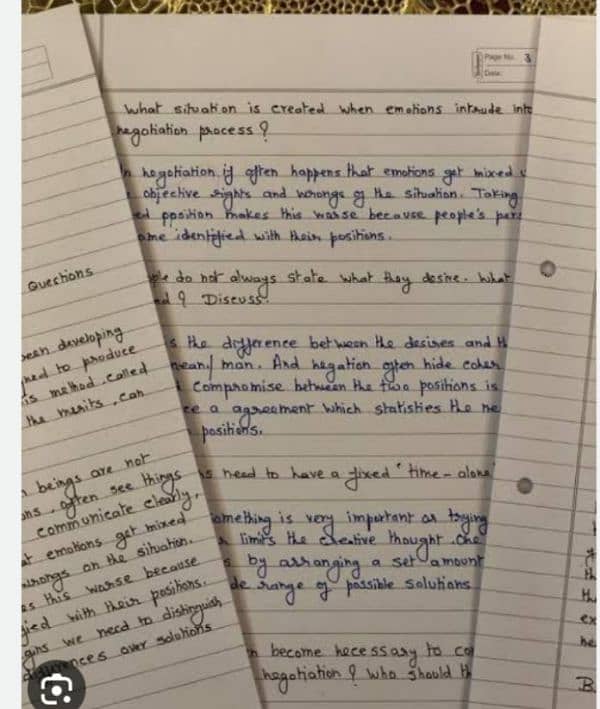 Page No. 3
Date:
What situation is created when emotions intrude into
negotiation process ?
In negotiation if often happens that emotions get mixed
objective rights and wrongs of the situation. Taking
ppsition makes this worse because people's
identified with their positions.
do not always state what they desire. What
? Discuss.
the difference between the desires and
man. And negation often hide
Compromise between the two positions is
a agreement which statisties the
positions.
need to have a fixed "time-alone"
something is very important as trying
limits the creative thought. One
by arranging a set amount
range of possible solutions
become necessary to
negotiation ? Who should
Questions
been developing
to produce
is method, called
the merits, can
beings are not
, often see things
communicate clearly,
emotions get mixed
wrongs on the sihation.
this worse because
with their positions.
we need to distinguish
over solutions
ex
B